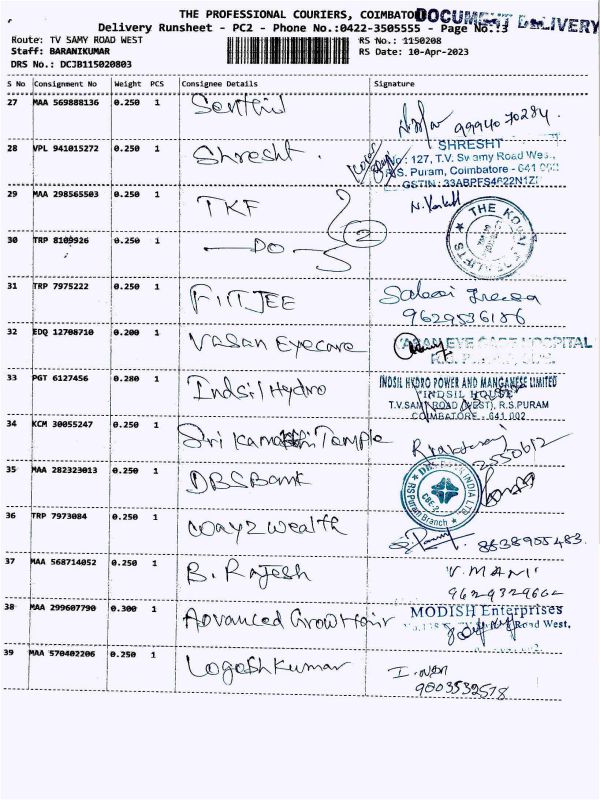 THE PROFESSIONAL COURIERS, COIMBATO
DOCUMENT DELIVERY
Delivery Runsheet - PC2 - Phone No.:0422-3505555 - Page No.:3
Route: TV SAMY ROAD WEST
RS No.: 1150208
Staff: BARANIKUMAR
RS Date: 10-Apr-2023
DRS No.: DCJB115020803
S No Consignment No Weight PCS Consignee Details Signature
27 MAA 569888136 0.250 1 Senthil
9994070284
28 VPL 941015272 0.250 1 Shresht.
SHRESHT
No : 127, T.V. Swamy Road West,
R.S. Puram, Coimbatore - 641 002
GSTIN : 33ABPFS4622N1Z
29 MAA 298565503 0.250 1 TKF
2
THE
30 TRP 8109926 0.250 1 —DO—
31 TRP 7975222 0.250 1 FIITJEE
9629536186
32 EDQ 12708710 0.200 1 Vasan Eyecare
VASAN EYE CARE HOSPITAL
33 PGT 6127456 0.280 1 Indsil Hydro
INDSIL HYDRO POWER AND MANGANESE LIMITED
"INDSIL HOUSE"
T.V.SAMY ROAD (WEST), R.S.PURAM
COIMBATORE - 641 002
34 KCM 30055247 0.250 1 Sri Kamatchi Temple
2550612
35 MAA 282323013 0.250 1 DBS Bank
INDIA LTD
CBE-2
RS Puram Branch
36 TRP 7973084 0.250 1 way2wealth
8838905483.
37 MAA 568714052 0.250 1 B. Rajesh
V. MANI
9629329662
38 MAA 299607790 0.300 1 Advanced GrowHair
MODISH Enterprises
Road West,
39 MAA 570402206 0.250 1 Logeshkumar
9003532578